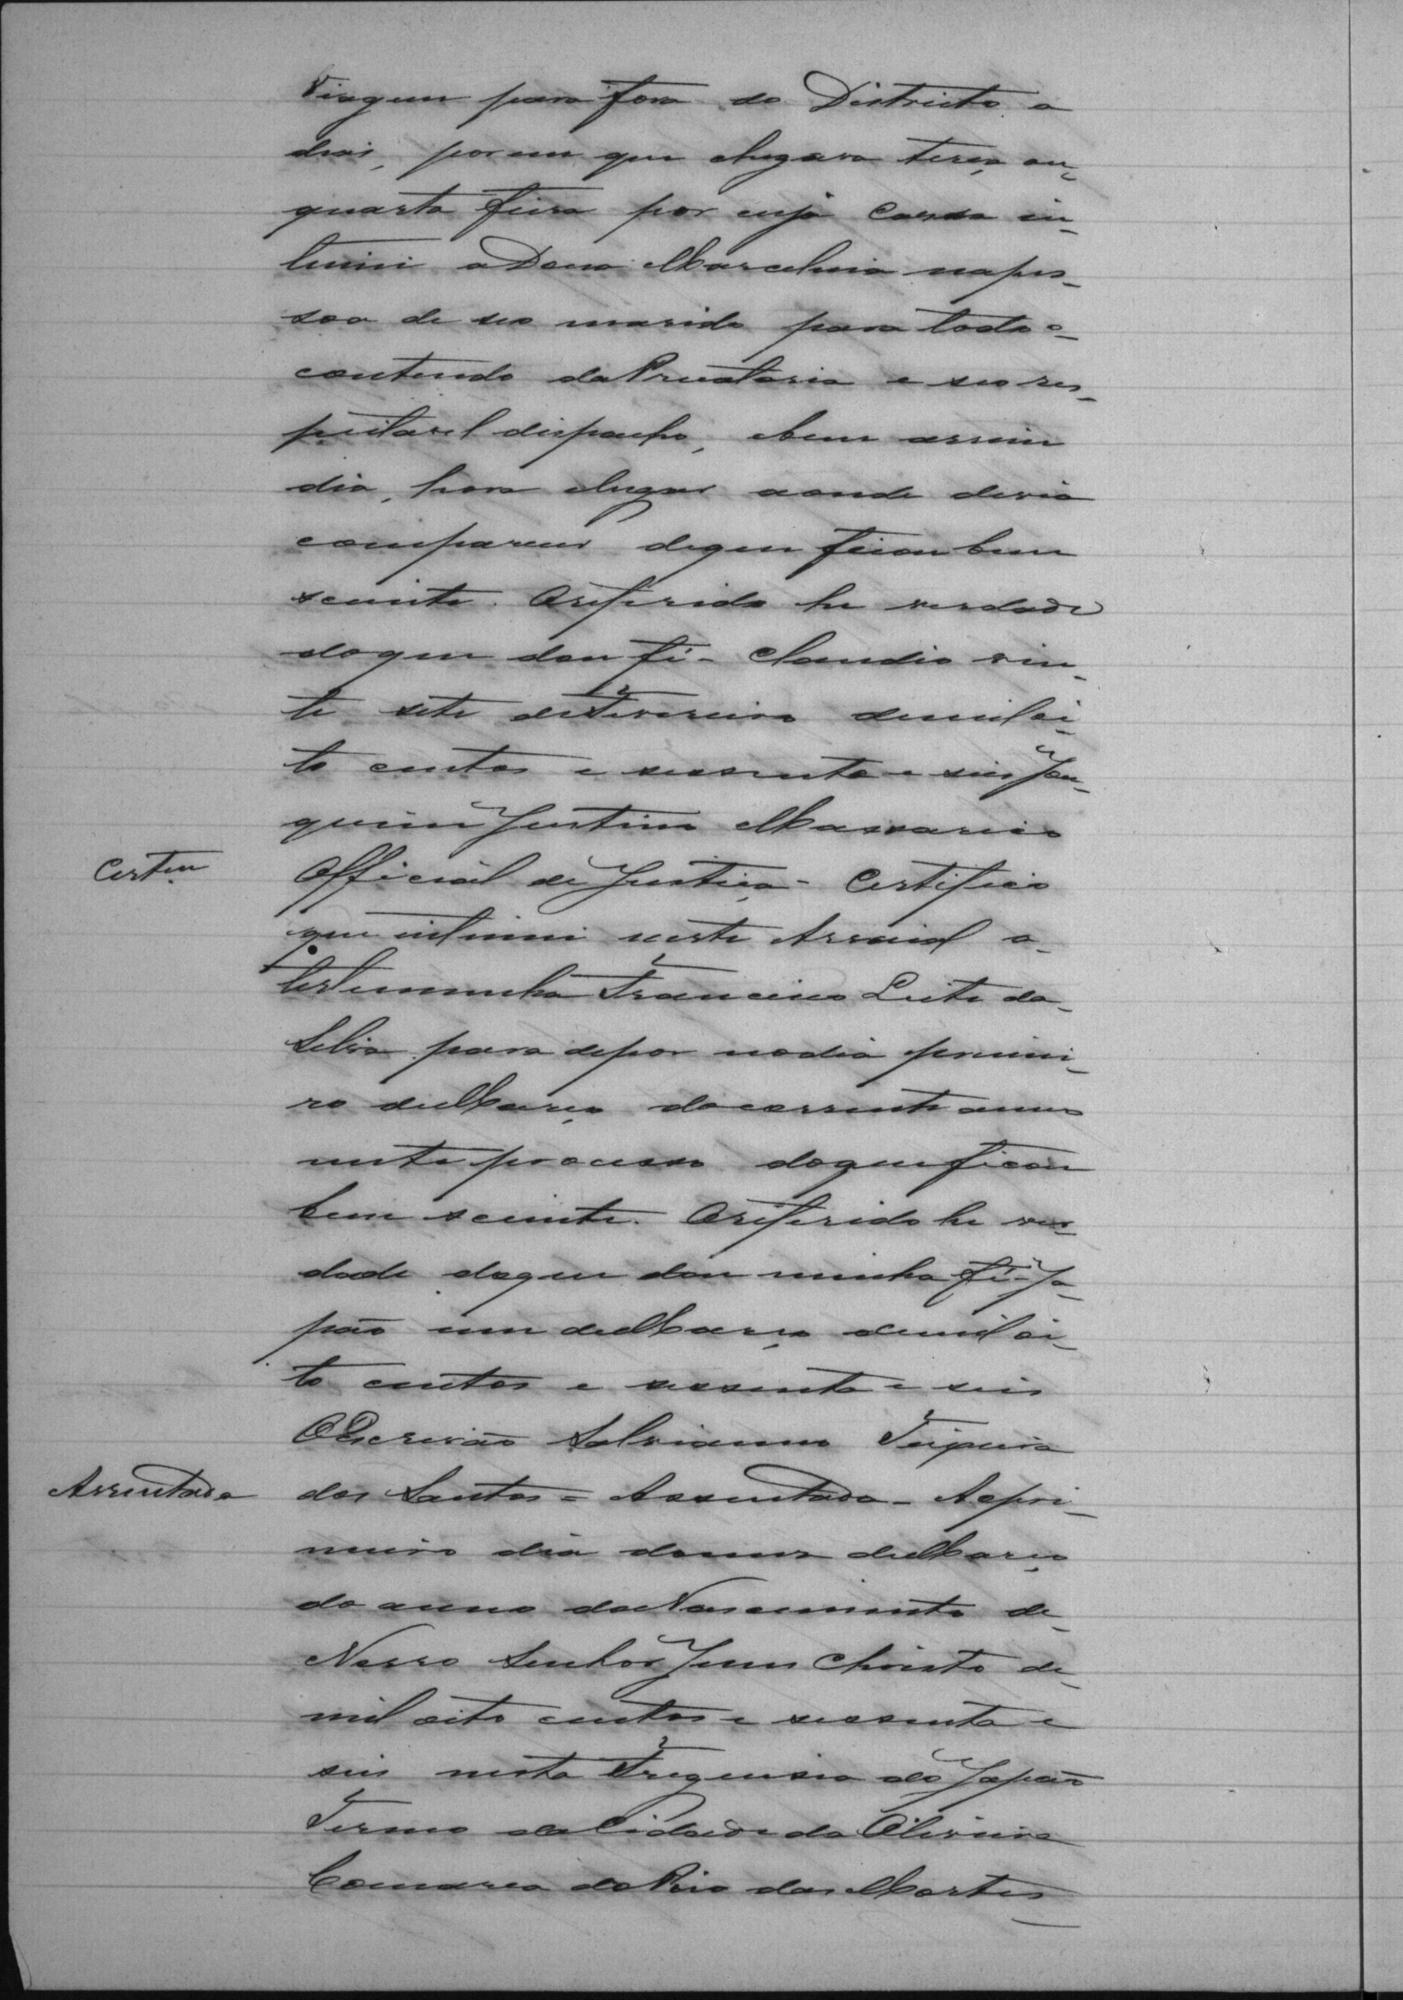 Viagem para fora do Districto a
dias, porem que chegava terça ou
quarta feira por cuja causa in-
timei a Dona Marcelina na pes-
soa de seo marido para todo o
contendo da Precatoria e seo res-
peitavel dispacho, e bem assim
dia, hora e lugar aonde devia
comparecer do que ficou bem
sciente. O referido he verdade
do que dou fé - Claudio vin-
te sete de Fevereiro de mil oi-
to centos e sessenta e seis Joa-
quim Justino Massarico
Certam
Official de Justiça - Certifico
que intimei neste Arraial a
testemunha Francisco Leite da
Silva para depor no dia primei-
ro de Março do corrente anno
neste processo do que ficou
bem sciente. O referido he ver-
dade do que dou minha fé - Ja-
pão um de Março de mil oi-
to centos e sessenta e seis
O Escrivão Salvianno Teixeira
Assentada
dos Santos = Assentada - Ao pri-
meiro dia do mez de Março
do anno do Nascimento de
Nosso Senhor Jesus Christo de
mil oito centos e sessenta e
seis nesta Freguesia do Japão
Termo da Cidade da Oliveira
Comarca do Rio das Mortes